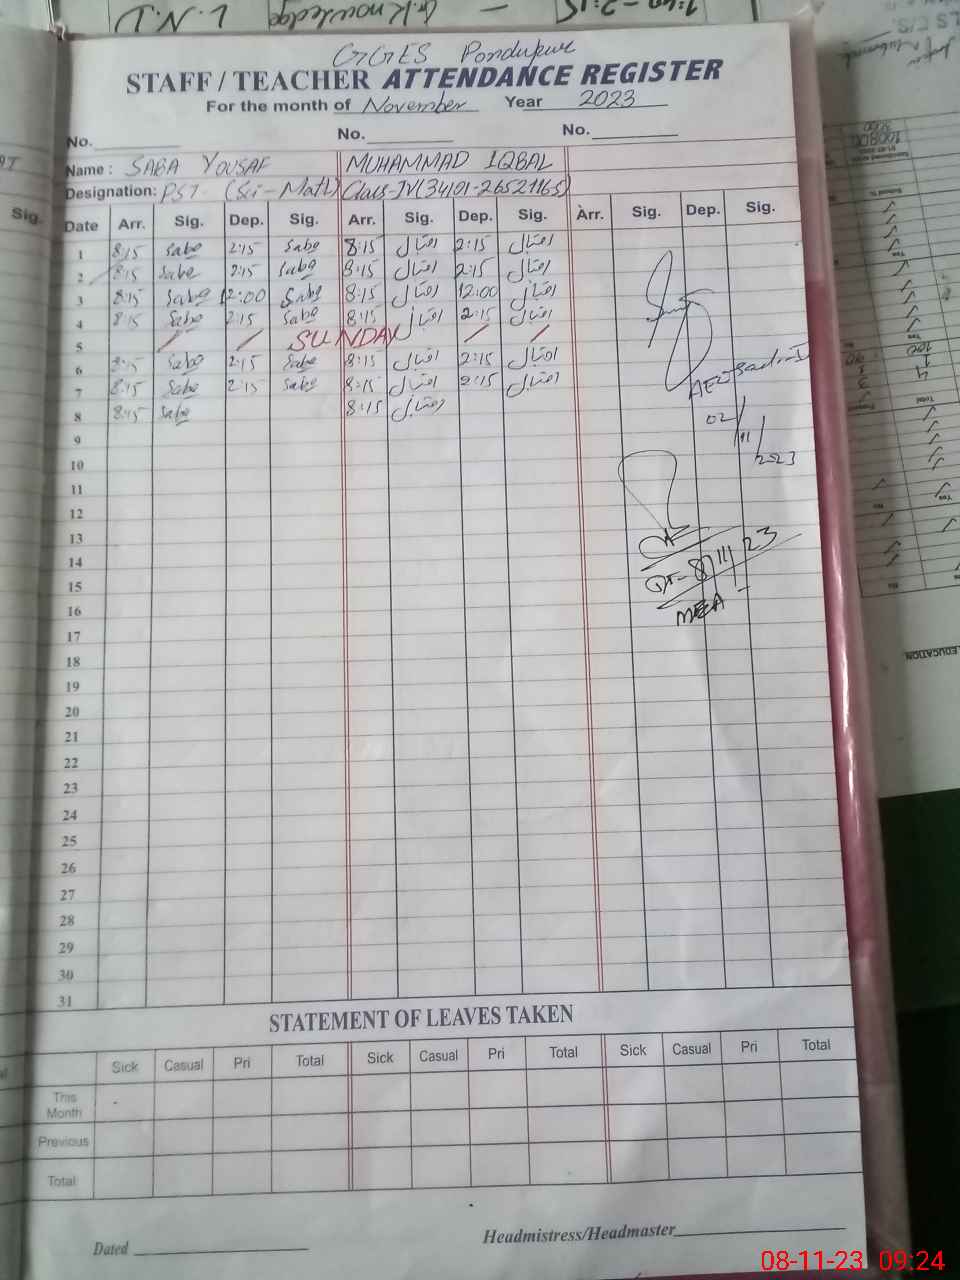 GGES Pondupur
STAFF / TEACHER ATTENDANCE REGISTER
For the month of November Year 2023
No. No. No.
Name: SABA YOUSAF MUHAMMAD IQBAL
Designation: PST (Sci-Math) Class-IV (34101-26521165)
Date Arr. Sig. Dep. Sig. Arr. Sig. Dep. Sig. Arr. Sig. Dep. Sig.
1 8:15 Sabe 2:15 Sabe 8:15 اقبال 2:15 اقبال
2 8:15 Sabe 2:15 Sabe 8:15 اقبال 2:15 اقبال
3 8:15 Sabe 12:00 Sabe 8:15 اقبال 12:00 اقبال
4 8:15 Sabe 2:15 Sabe 8:15 اقبال 2:15 اقبال
5 SUNDAY
6 8:15 Sabe 2:15 Sabe 8:15 اقبال 2:15 اقبال
7 8:15 Sabe 2:15 Sabe 8:15 اقبال 2:15 اقبال
8 8:15 Sabe 8:15 اقبال
AEO
02/11/2023
9
10
11
12
13
14
8/11/23
15
16
MEA
17
18
19
20
21
22
23
24
25
26
27
28
29
30
31
STATEMENT OF LEAVES TAKEN
Sick Casual Pri Total Sick Casual Pri Total Sick Casual Pri Total
This Month -
Previous
Total
Dated Headmistress/Headmaster
08-11-23 09:24